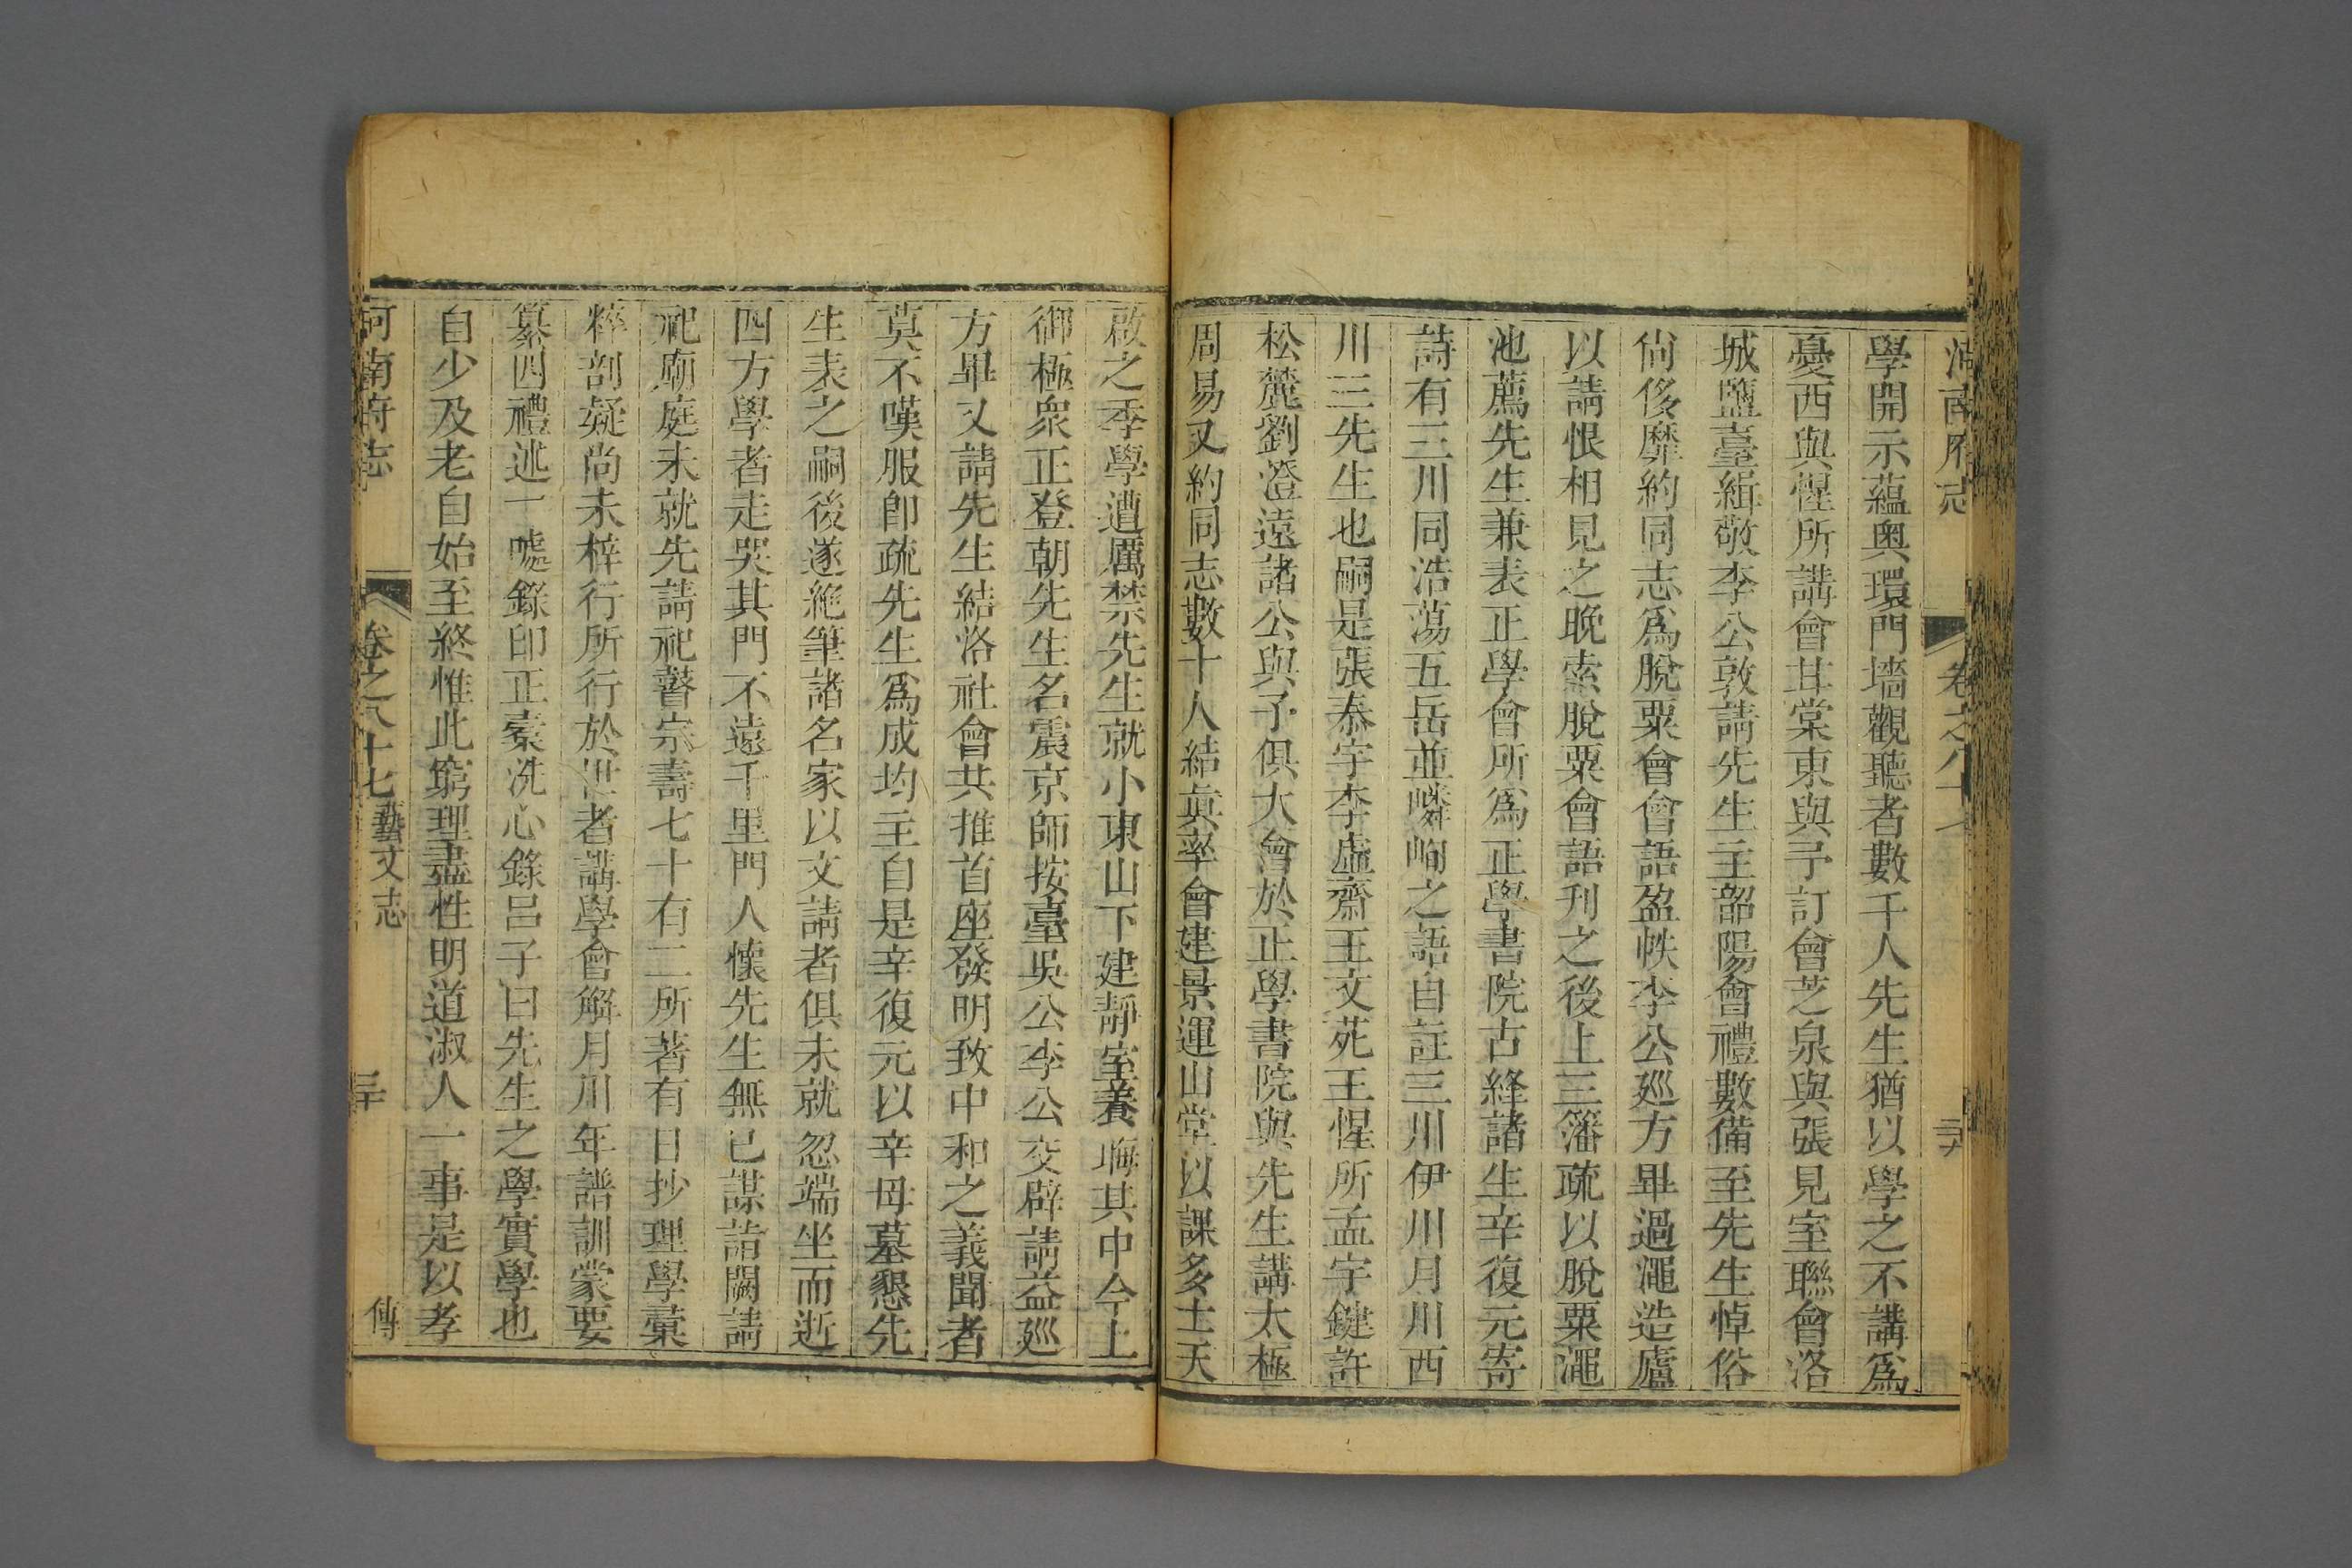 河南府志 卷之八十七 二十九
學開示蘊奧環門墻觀聽者數千人先生猶以學之不講爲
憂西與惺所講會甘棠東與予訂會芝泉與張見室聯會洛
城鹽臺緝敬李公敦請先生主韶陽會禮數備至先生悼俗
尙侈靡約同志爲脫粟會會語盈帙李公廵方畢過澠造廬
以請恨相見之晚索脫粟會語刋之後上三籓疏以脫粟澠
池薦先生兼表正學會所爲正學書院古絳諸生辛復元寄
詩有三川同浩蕩五岳並嶙峋之語自註三川伊川月川西
川三先生也嗣是張泰宇李虛齋王文苑王惺所孟宇鍵許
松麓劉澄遠諸公與予俱大會於正學書院與先生講太極
周易又約同志數十人結眞率會建景運山堂以課多士天
啟之季學遭厲禁先生就小東山下建靜室養晦其中今上
御極衆正登朝先生名震京師按臺吳公李公交辟請益廵
方畢又請先生結洛社會共推首座發明致中和之義聞者
莫不嘆服卽疏先生爲成均主自是辛復元以辛母墓懇先
生表之嗣後遂絶筆諸名家以文請者俱未就忽端坐而逝
四方學者走哭其門不遠千里門人懷先生無已謀詣闕請
祀廟庭未就先請祀瞽宗壽七十有二所著有日抄理學彙
粹剖疑尚未梓行所行於世者講學會解月川年譜訓蒙要
纂四禮述一噓錄印正藁洗心錄呂子曰先生之學實學也
自少及老自始至終惟此窮理盡性明道淑人一事是以孝
河南府志 卷之八十七 藝文志 三十 傳